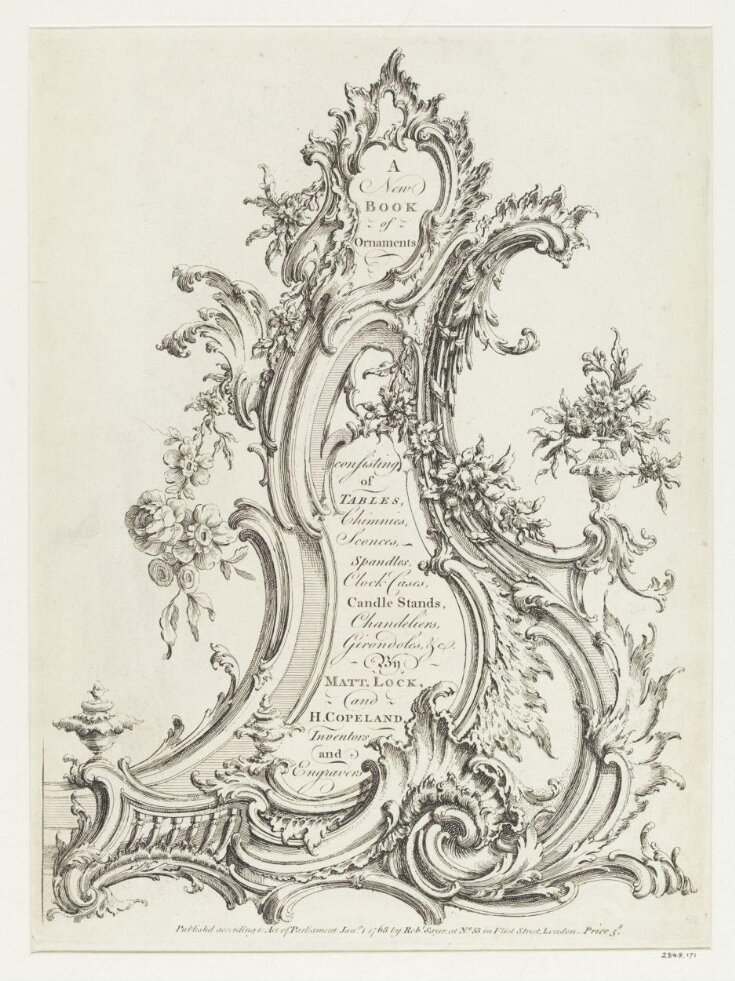 A
New
BOOK
of
Ornaments
consisting
of
TABLES,
Chimnies,
Sconces,
Spandles,
Clock Cases,
Candle Stands,
Chandeliers,
Girondoles, &c.
By
MATT. LOCK,
and
H. COPELAND,
Inventors
and
Engravers
Publish'd according to Act of Parliament Jany. 1. 1768 by Robt. Sayer, at No. 53 in Fleet Street, London. Price 5s.
2848,171